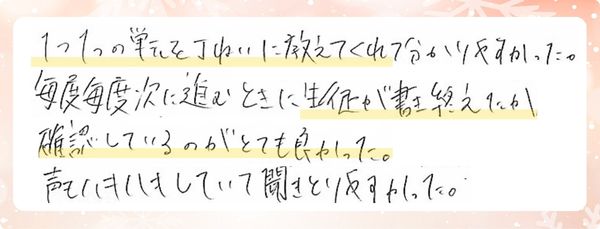 1つ1つの単元を丁ねいに教えてくれて分かりやすかった。
毎度毎度次に進むときに生徒が書き終えたか
確認しているのがとても良かった。
声もハキハキしていて聞きとりやすかった。